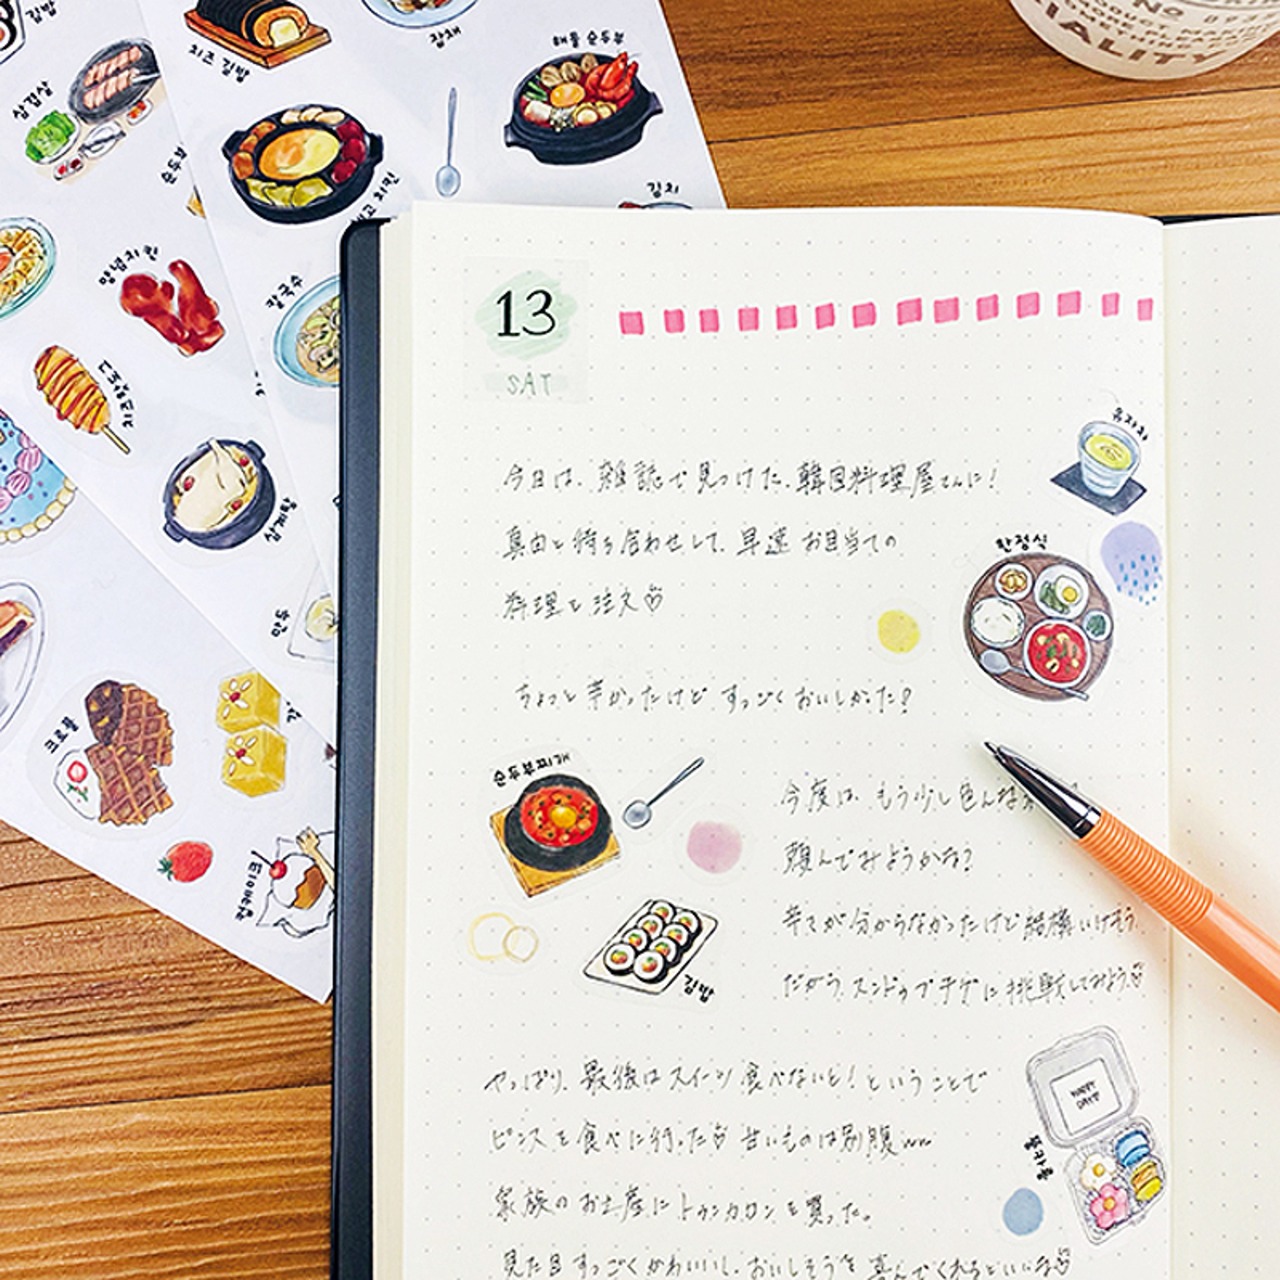 김밥
치즈 김밥
잡채
해물 순두부
삼겹살
순두부
치킨
김치
양념치킨
칼국수
삼계탕
크로플
13
SAT
유자차
今日は、雑誌で見つけた、韓国料理屋さんに!
真由と待ち合わせして、早速お目当ての
料理を注文
한정식
ちょっと辛かったけど すっごくおいしかった!
순두부찌개
今度は、もう少し色んな
頼んでみようかな?
辛さが分からなかったけど結構いけそう
だから、スンドゥブチゲに挑戦してみよう
김밥
やっぱり、最後はスイーツ食べないと!ということで
ピンスを食べに行った 甘いものは別腹
HAPPY
DAY!
뚱카롱
家族のお土産にトゥンカロンを買った。
見た目すっごくかわいいし、おいしそうを喜んでくれるといいな